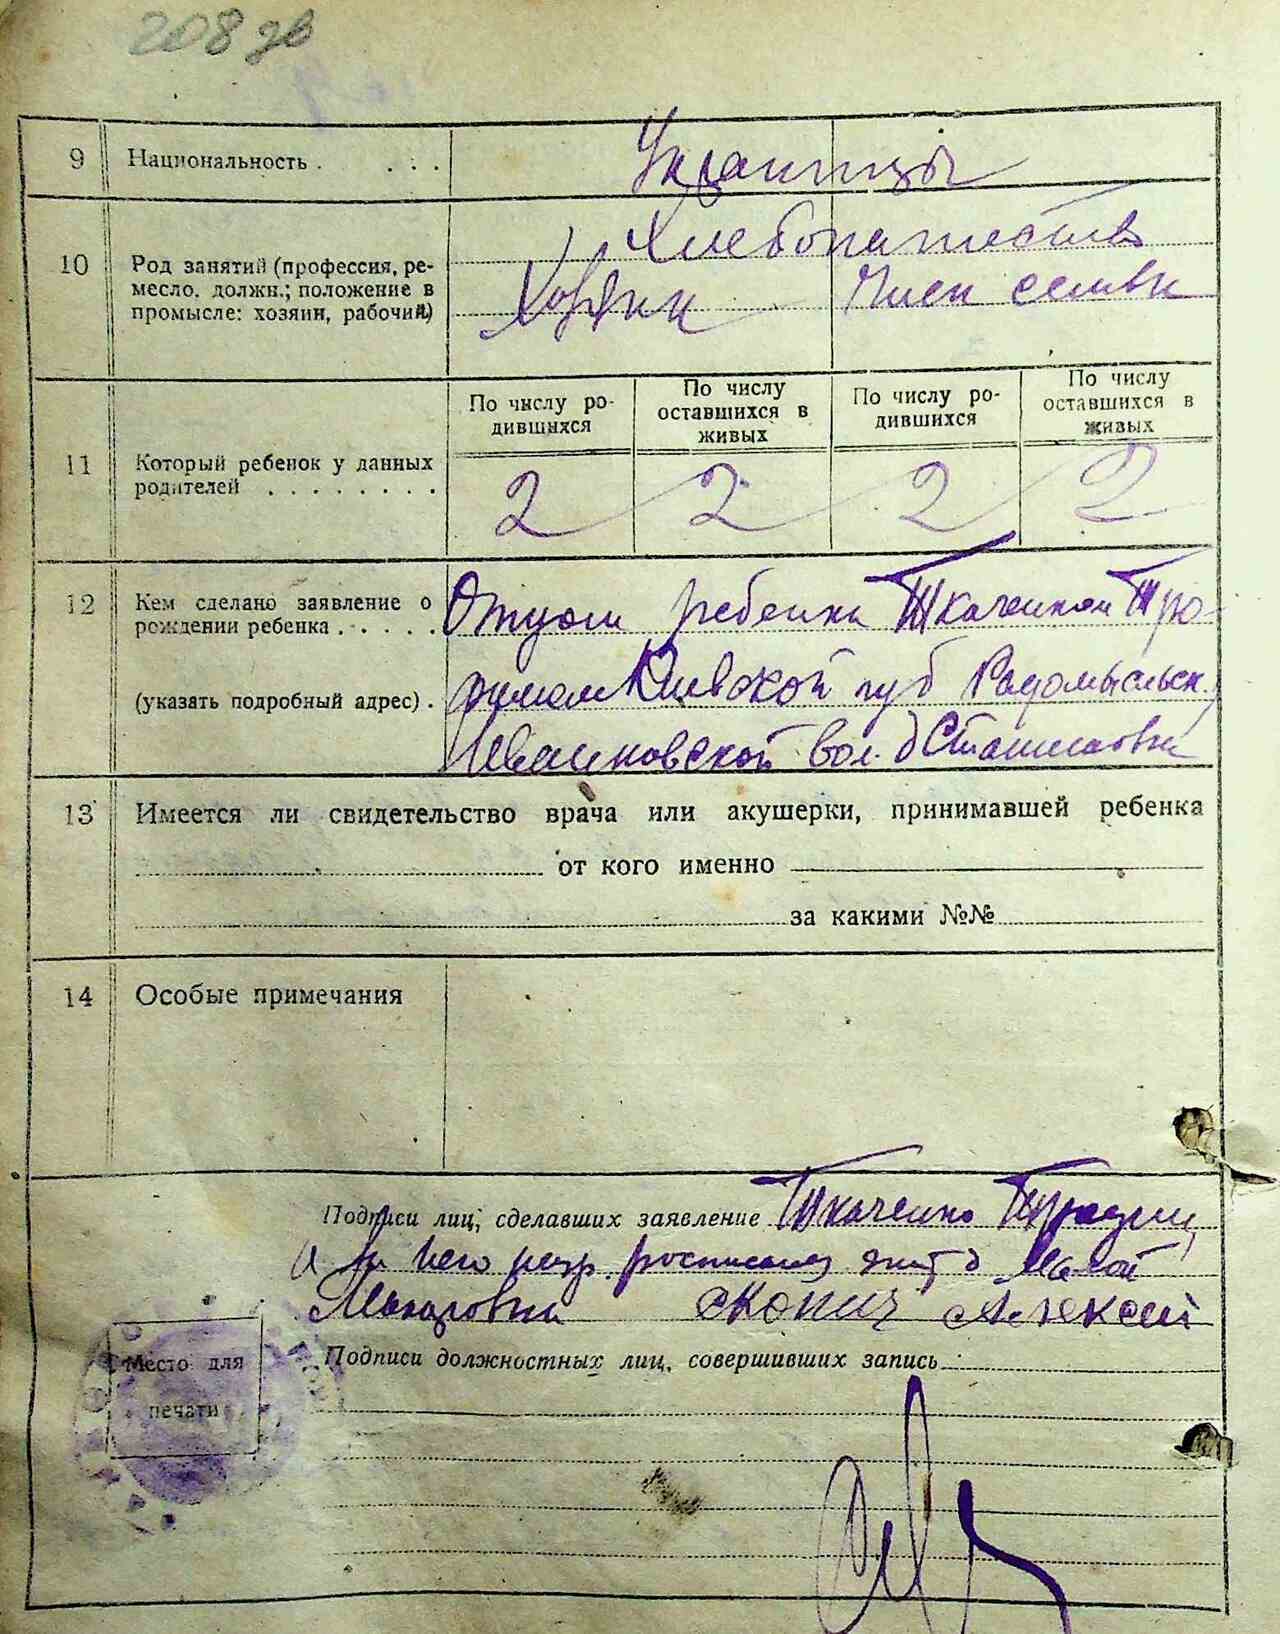 208 зв
9 Национальность . . . . Украинцы
10 Род занятий (профессия, ре-
месло, должн.; положение в
промысле: хозяин, рабочий)
Хлебопашество
Хозяин Член семьи
11 Который ребенок у данных
родителей . . . . . . . .
По числу ро-
дившихся
По числу
оставшихся в
живых
По числу ро-
дившихся
По числу
оставшихся в
живых
2 2 2 2
12 Кем сделано заявление о
рождении ребенка . . . . .
(указать подробный адрес) .
Отцом ребенка Ткаченком Тро-
Киевской губ Радомысльск.
Ивановской вол. д Станиловки
13 Имеется ли свидетельство врача или акушерки, принимавшей ребенка
от кого именно
за какими №№
14 Особые примечания
Подписи лиц, сделавших заявление Ткаченко
А за него негр. росписался жит д Малой
Макаровки Скопич Алексей
Подписи должностных лиц, совершивших запись
Место для
печати